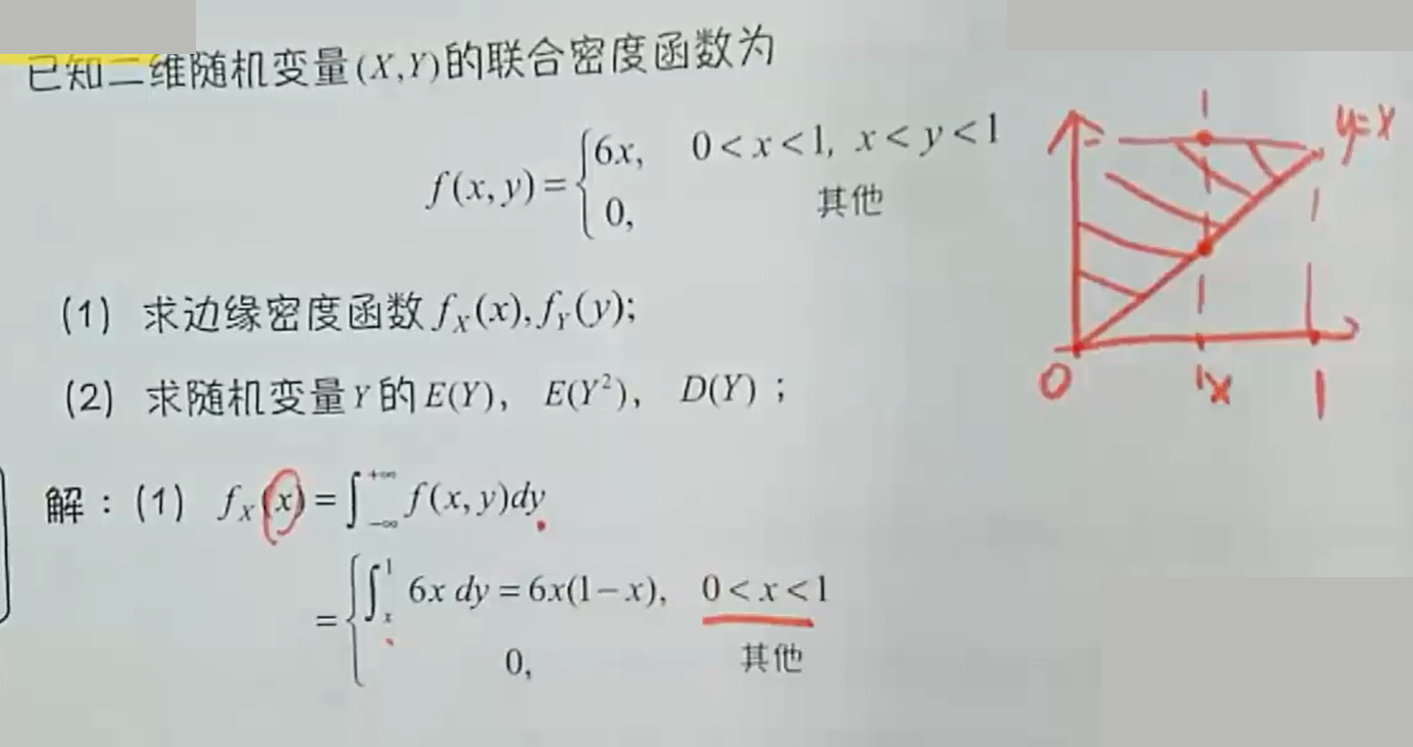 已知二维随机变量(X,Y)的联合密度函数为
f(x,y)={6x, 0<x<1, x<y<1
0, 其他
(1) 求边缘密度函数f_X(x),f_Y(y);
(2) 求随机变量Y的E(Y), E(Y²), D(Y) ;
解：(1) f_X(x)=∫_{-∞}^{+∞} f(x,y)dy
={∫_x^1 6x dy=6x(1-x), 0<x<1
0, 其他
1
y=x
O
x
1